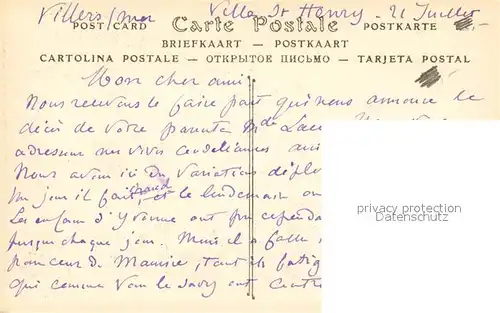 Villers/mer Villa St Henry - 21 Juillet
POST CARD Carte Postale POSTKARTE
BRIEFKAART — POSTKAART
CARTOLINA POSTALE — ОТКРЫТОЕ ПИСЬМО — TARJETA POSTAL
Mon cher ami
Nous recevons le faire part qui nous annonce le
décès de votre parente Mde
adresse nos vives condoléances
Nous avons ici du variations
Un jour il fait chaud, et le lendemain on
Les enfants d'Yvonne ont pu cependant
presque chaque jour. Mais il a fallu
de Maurice, tout
qui comme vous le savez ont
privacy protection
Datenschutz